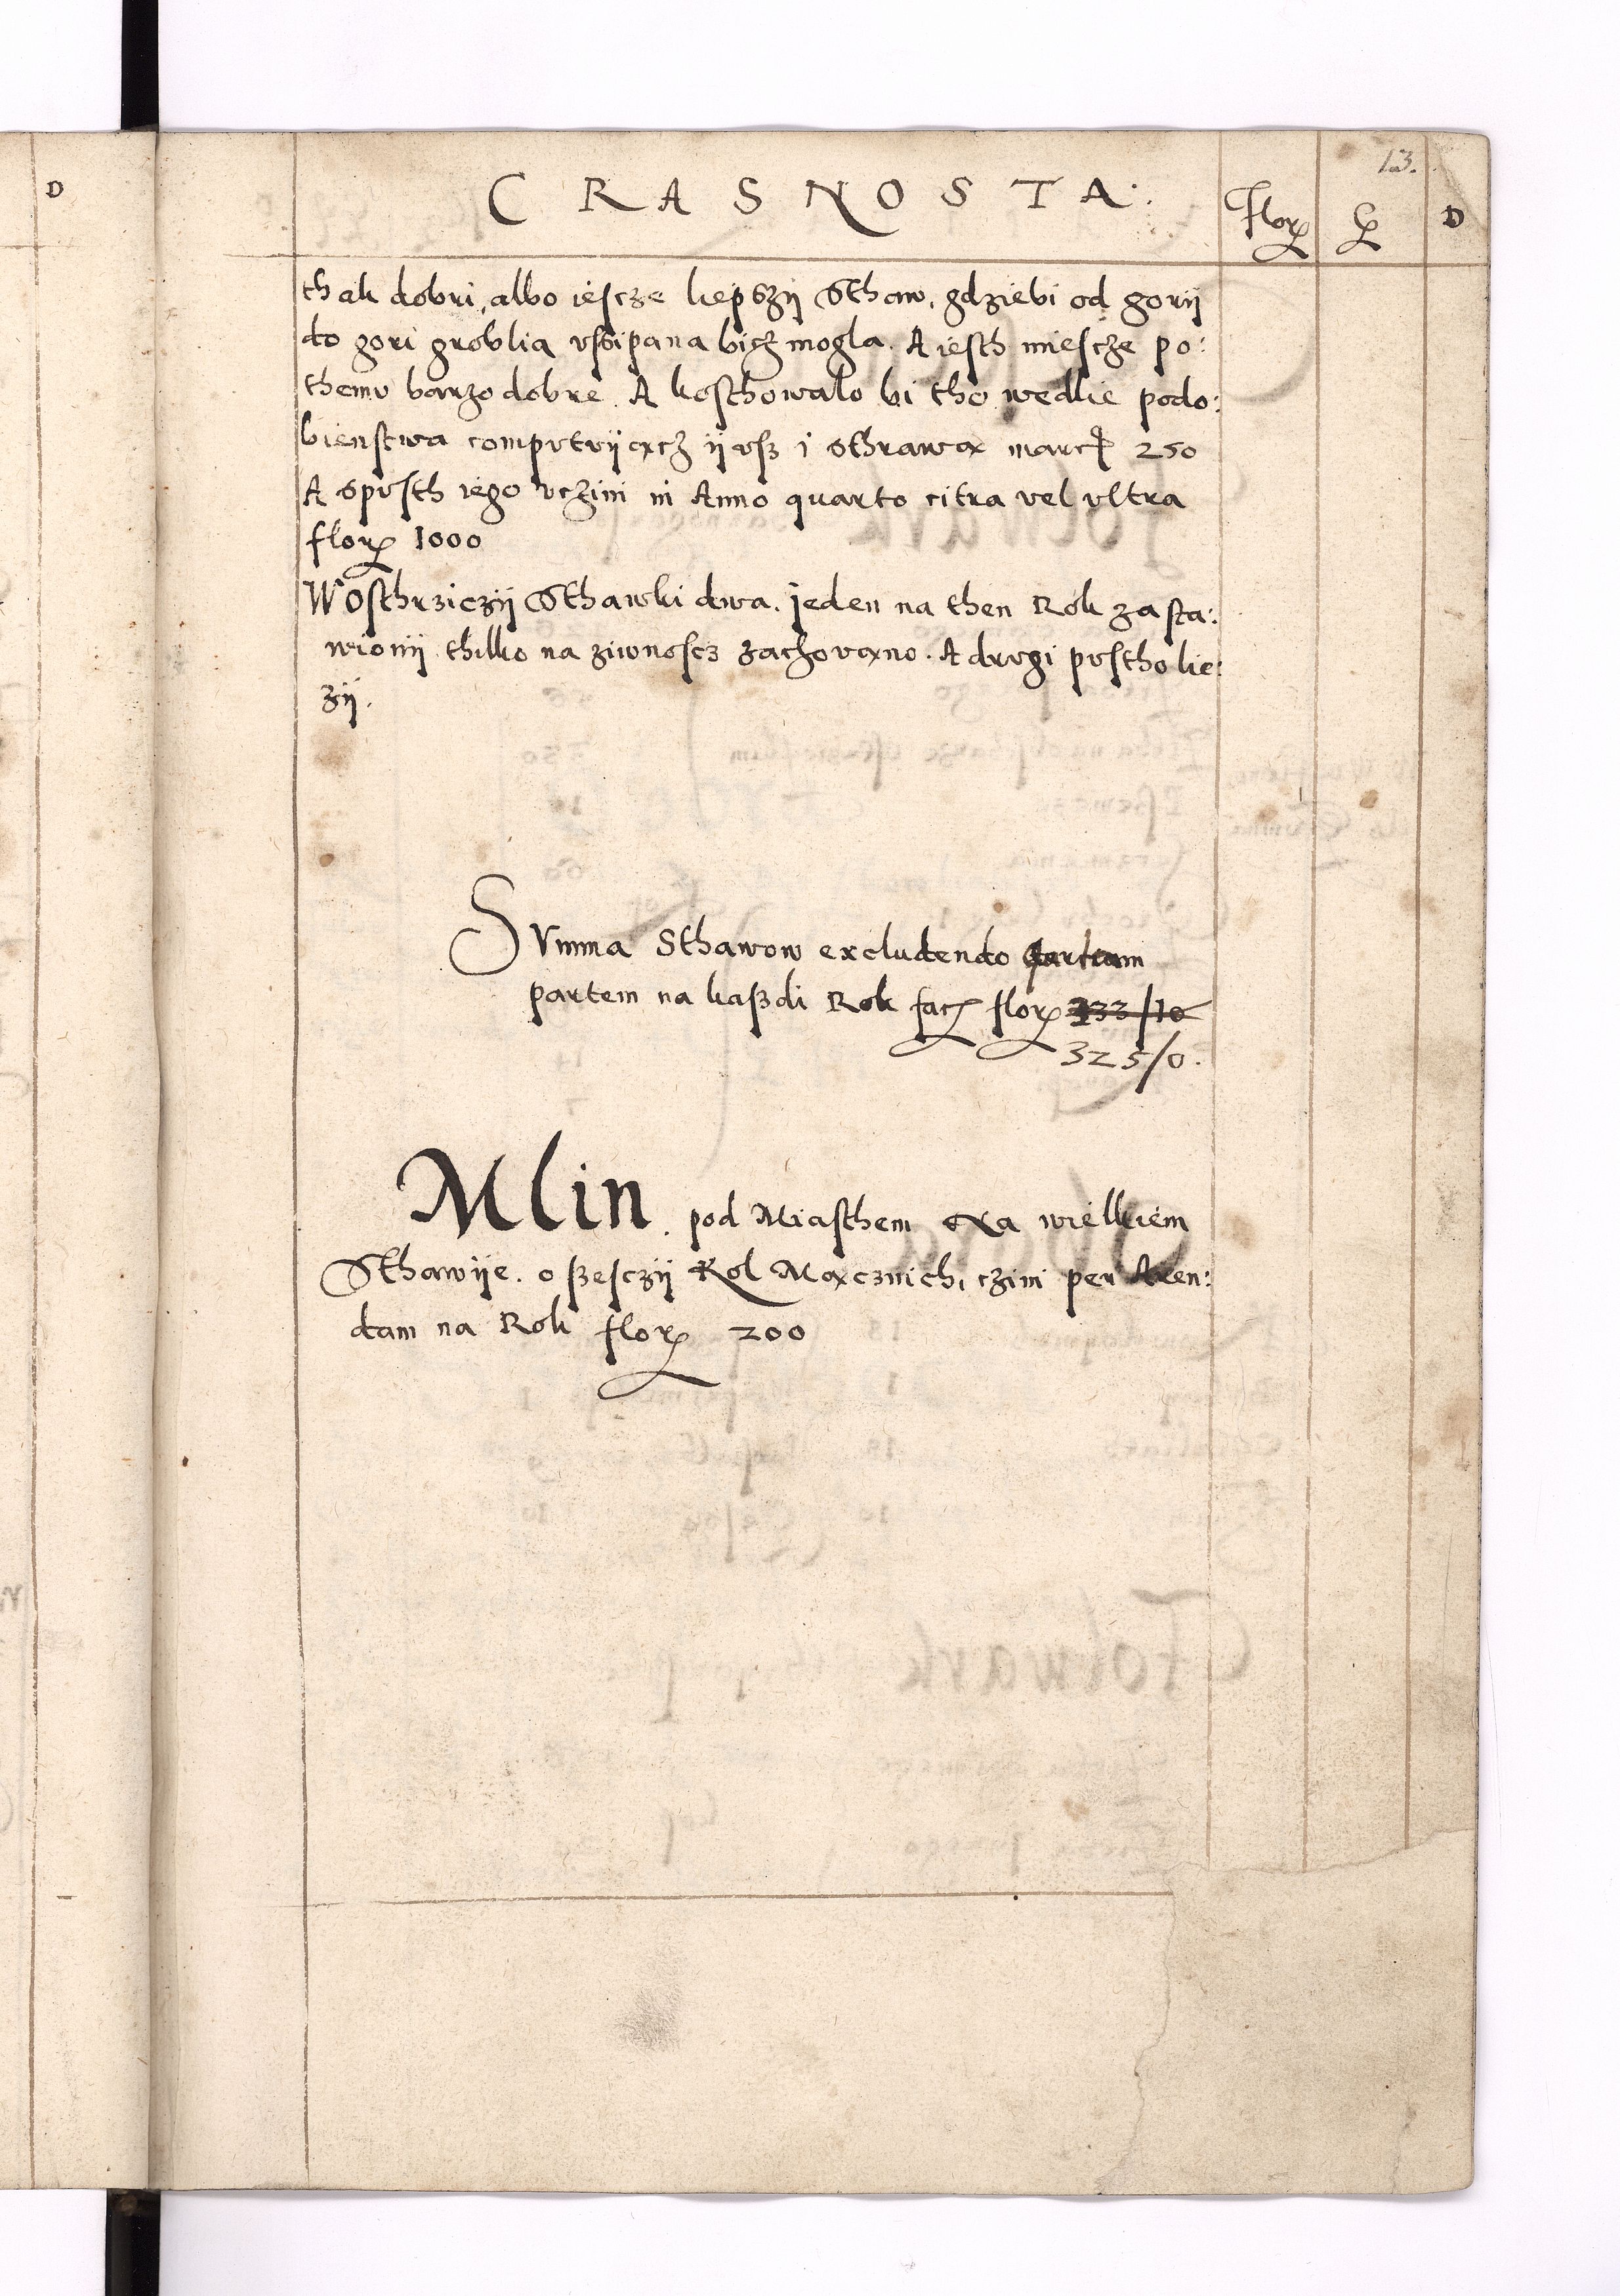 13.
D
CRASNOSTA.
Flor
D
thak dobri, albo iescze liepszÿ Sthaw, gdziebi od gorÿ
do gori groblia vssipana bicz mogla. A iesth miescze po:
themv barzo dobre. A kosthowalo bi tho wedlie podo:
bienstwa compvtvÿącz ÿ vsz i sthrawą marc 250
A spvsth iego vczini in Anno qvarto citra vel vltra
flor 1000
W Osthrziczÿ Sthawki dwa. jeden na then Rok zasta:
wionÿ thilko na ziwnoscz zachowąno. A drvgi pvstho lie:
zÿ.
Svmma Sthawow excludendo partem na kaszdi Rok fac flor 333/10
325/0.
Mlin. pod Miasthem Na wielkiem
Sthawÿe. o szesczÿ Kol Mącznich, czini per Aren:
dam na Rok flor 200